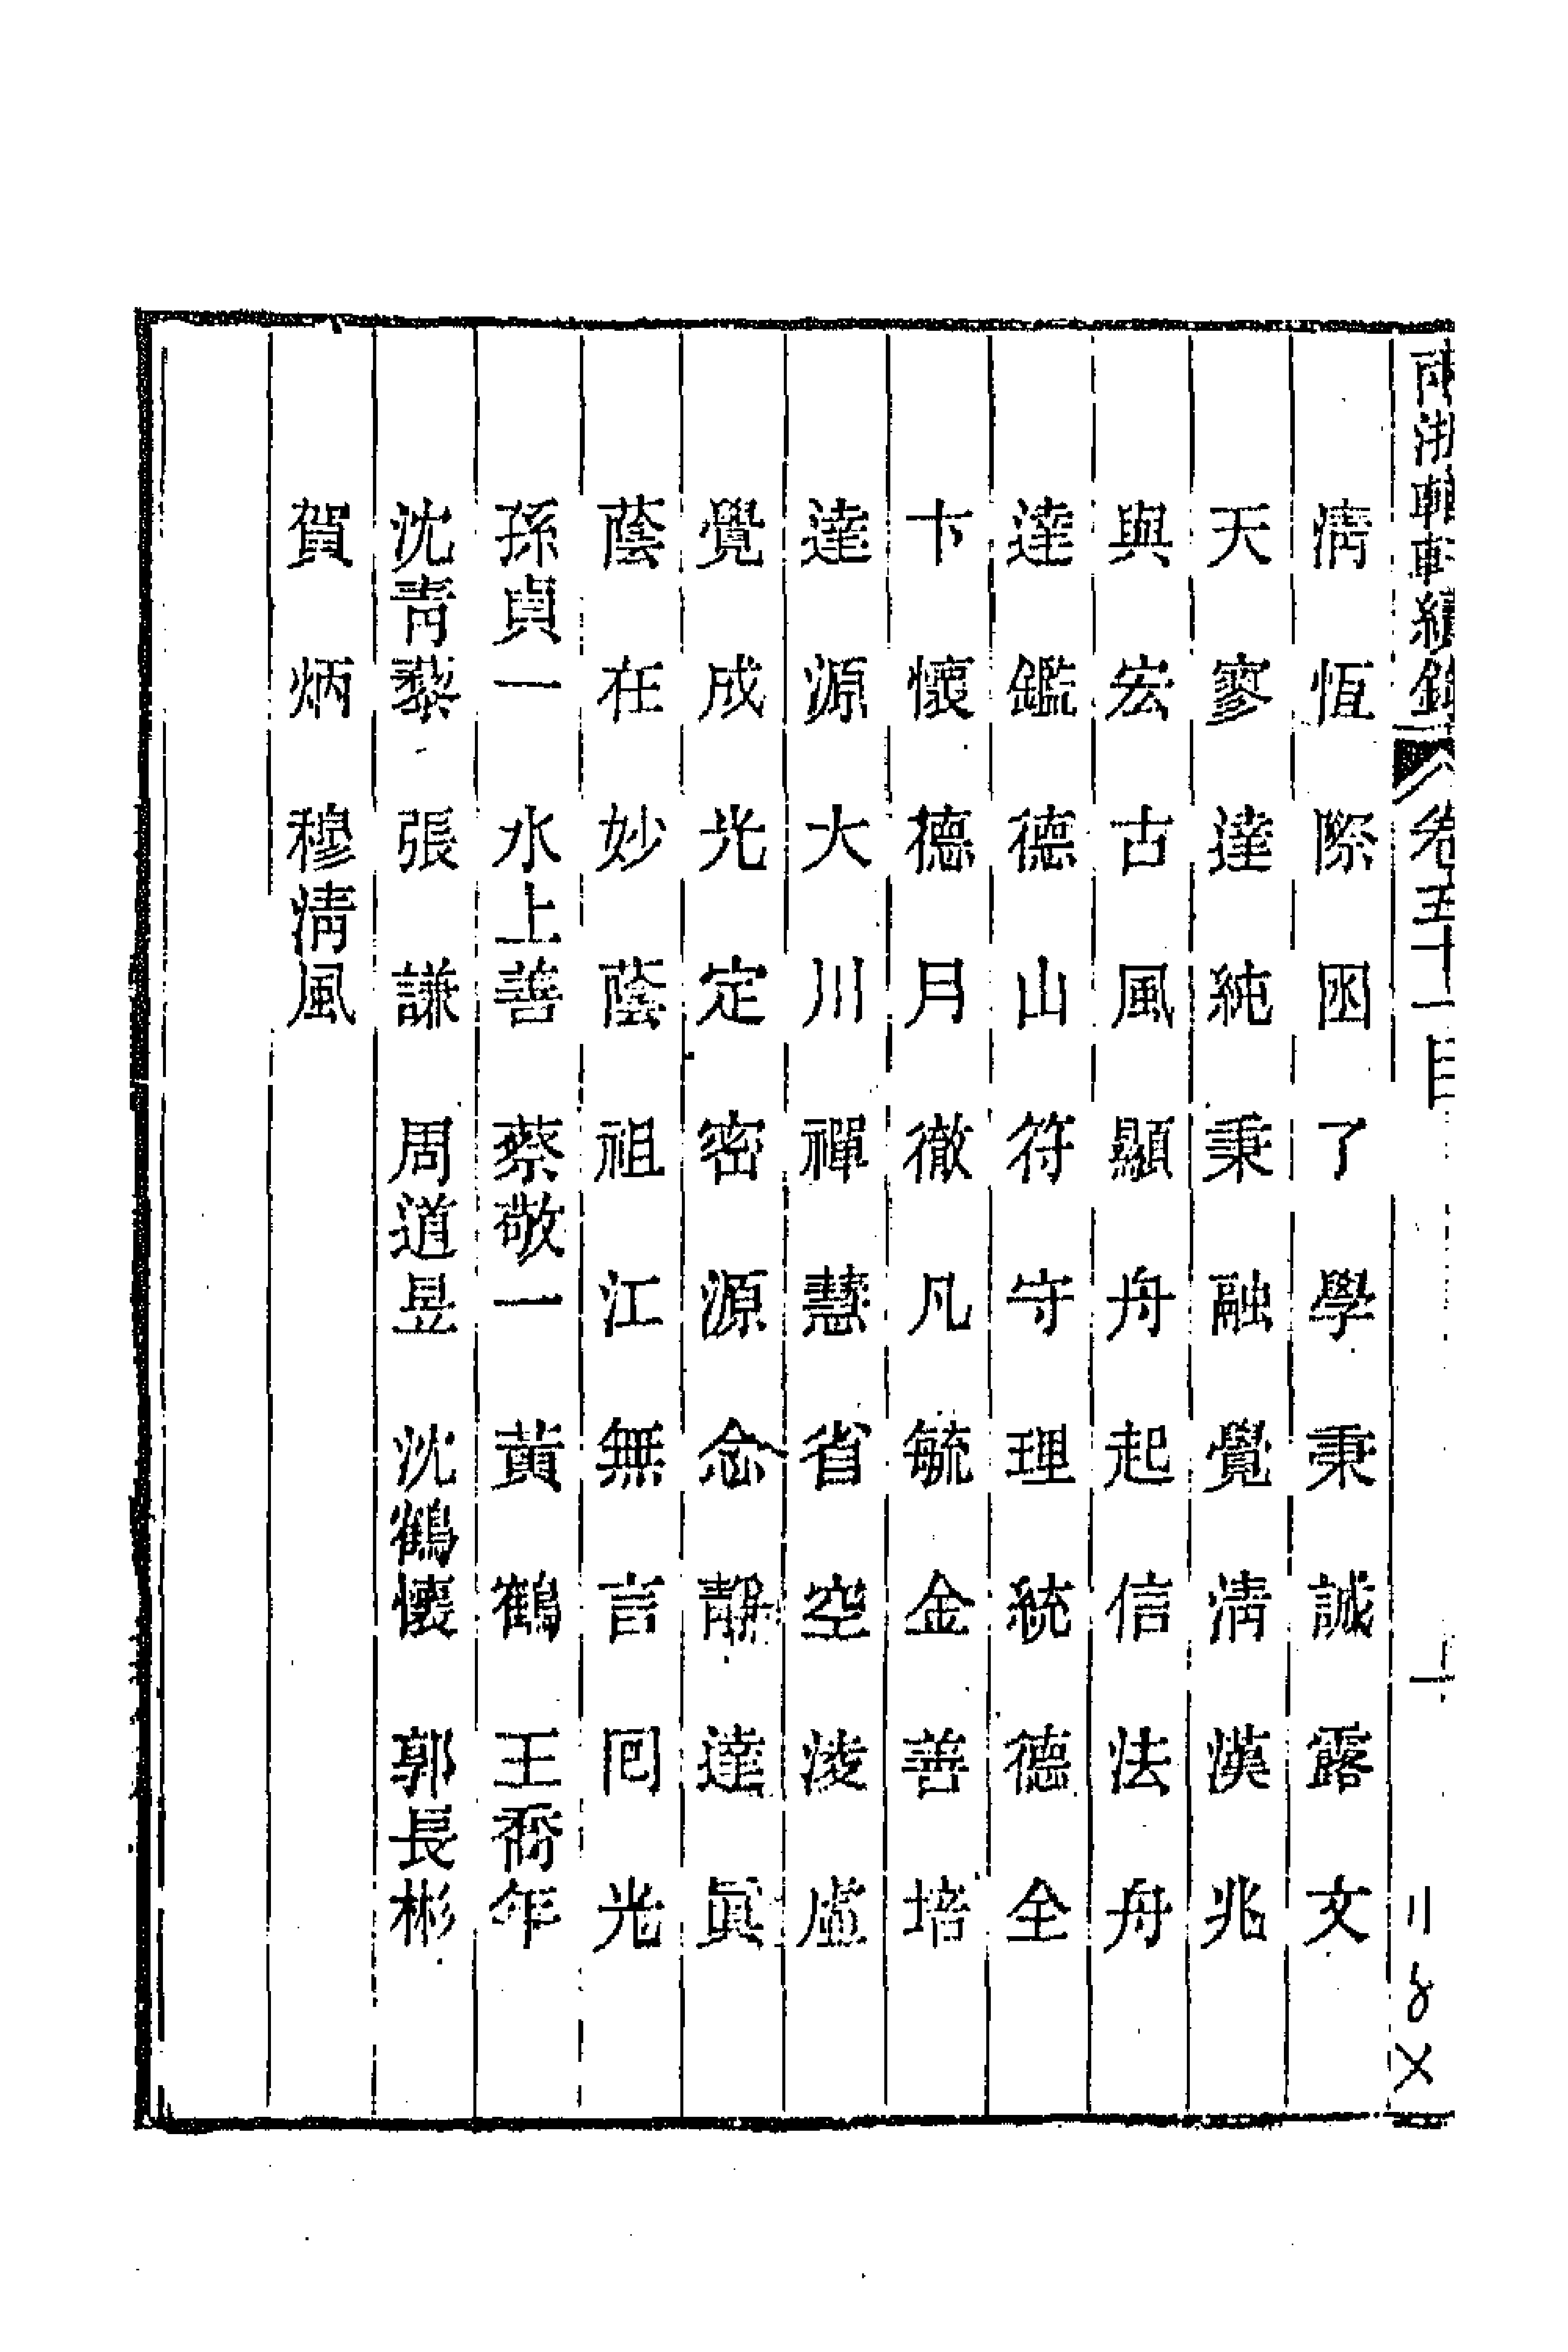 兩浙輶軒續錄 卷五十一目
清恆 際因 了學 秉誠 露文
天寥 達純 秉融 覺清 漢兆
與宏 古風 顯舟 起信 法舟
達鑑 德山 符守 理統 德全
卞懷 德月 徹凡 毓金 善培
達源 大川 禪慧 省空 淩虛
覺成 光定 密源 念靜 達眞
蔭在 妙蔭 祖江 無言 囘光
孫貞一 水上善 蔡敬一 黃鶴 王裔年
沈青藜 張謙 周道昱 沈鶴懷 郭長彬
賀炳 穆清風